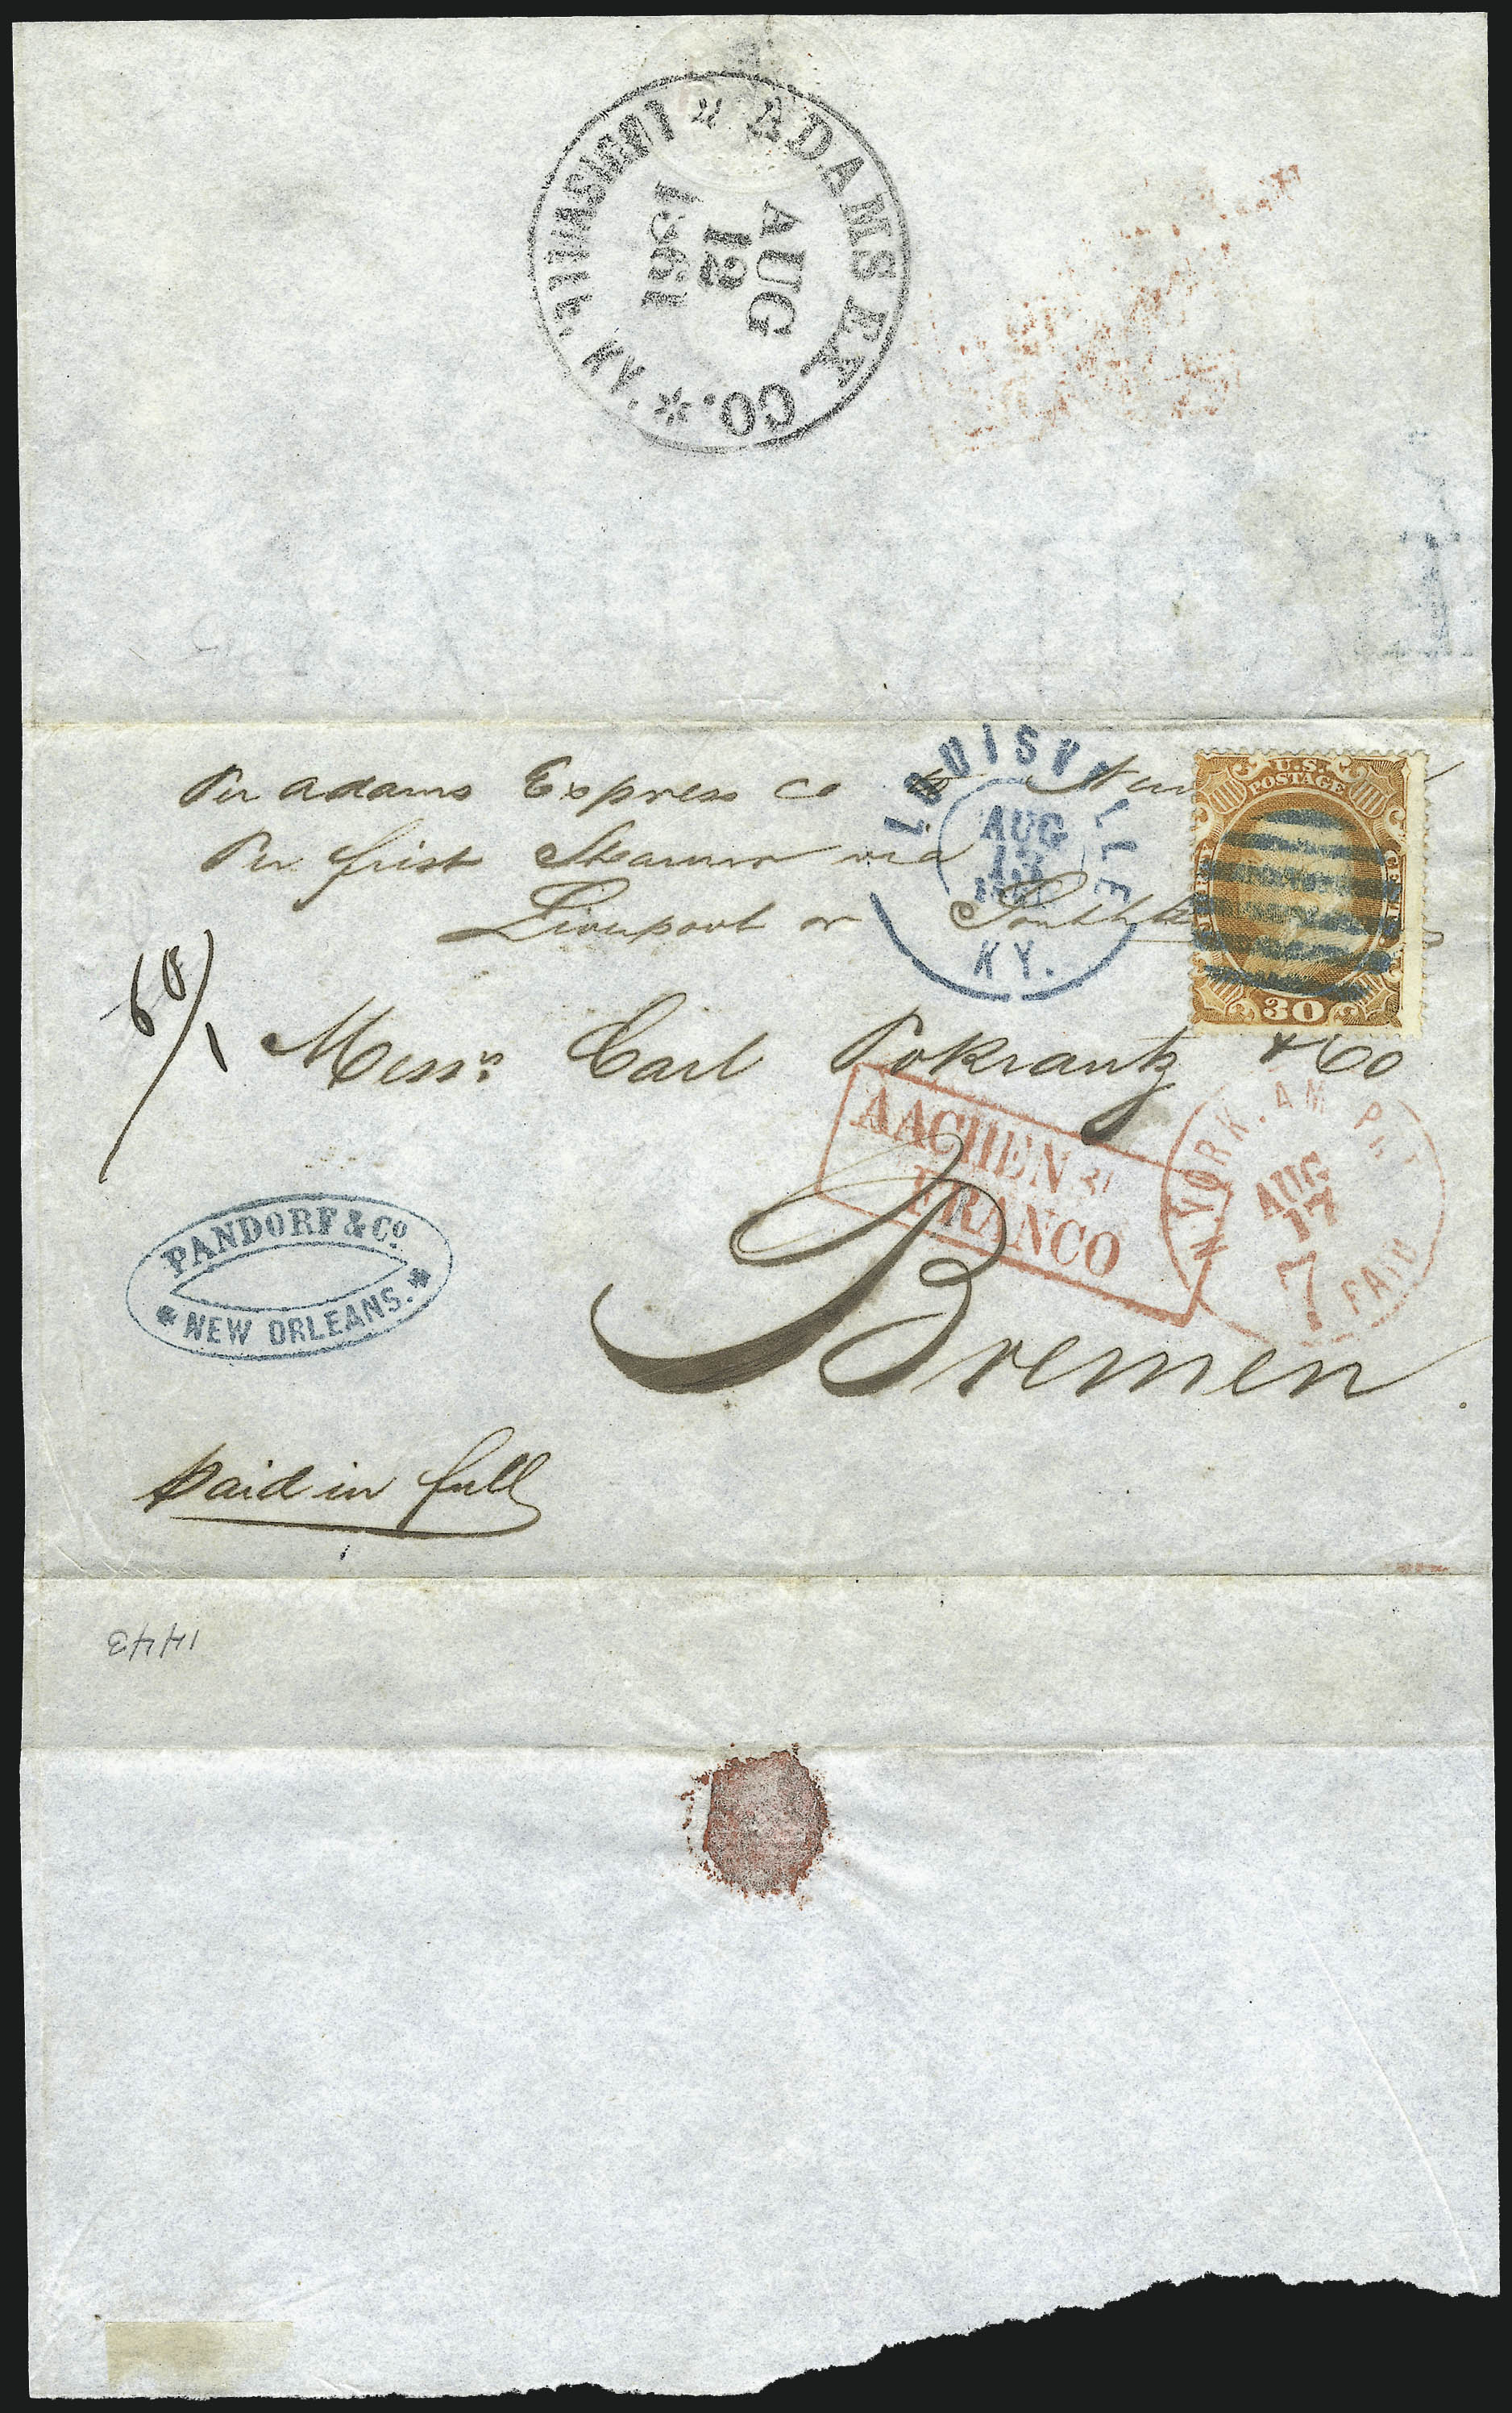 ADAMS EX. CO. * LOUISVILLE, KY. *
AUG
12
1861
Per Adams Express Co to New
Per first Steamer via
Liverpool or Southh
LOUISVILLE
AUG
13
1861
KY.
U.S.
POSTAGE
30
60/1
Messrs. Carl Pokrantz & Co
AACHEN
FRANCO
N. YORK. AM. PKT
AUG
17
7
PAID
Bremen.
PANDORF & Co
* NEW ORLEANS. *
paid in full
1443